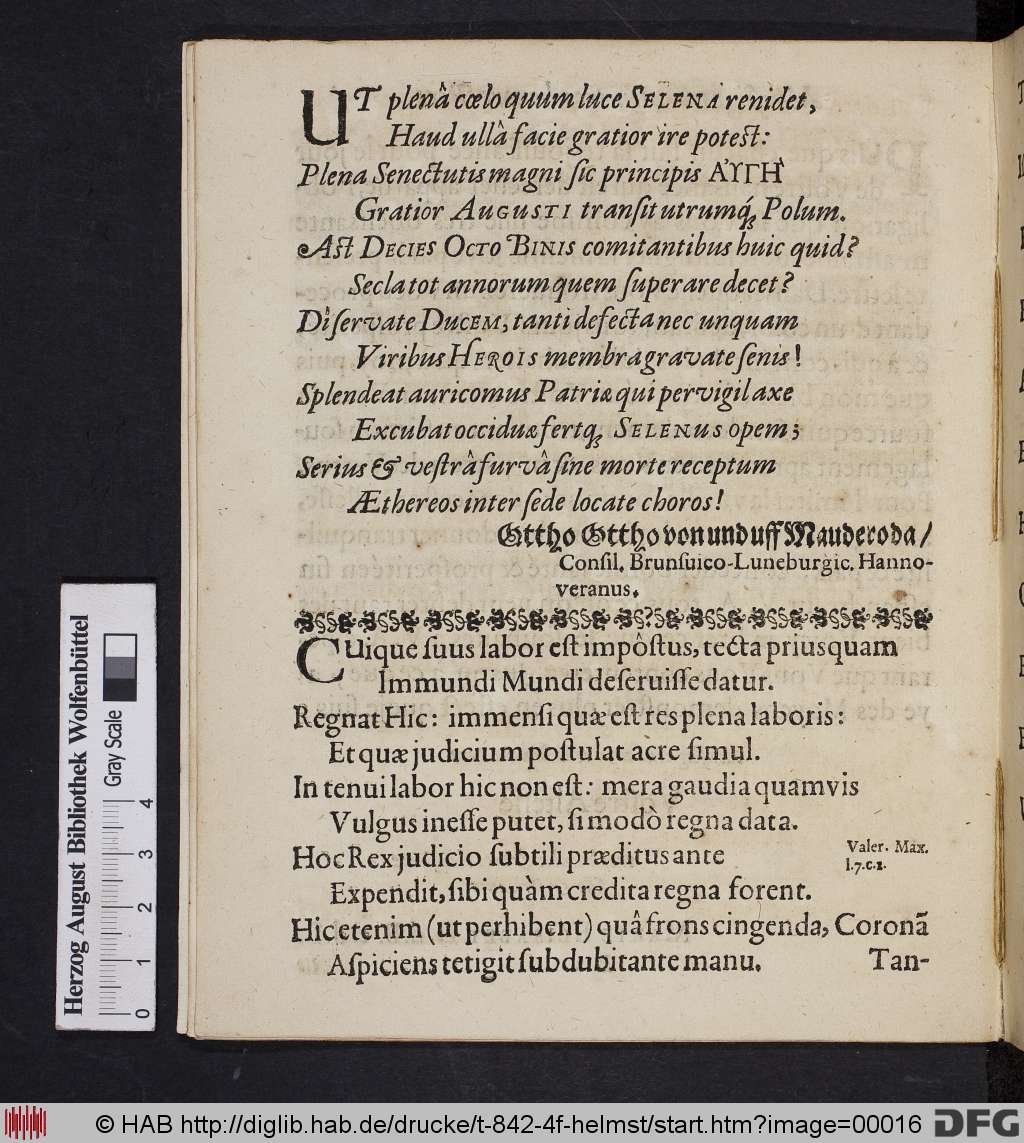 UT plenâ cœlo quum luce SELENA renidet,
Haud ullâ facie gratior ire potest:
Plena Senectutis magni ſic principis ἈΥΓῊ
Gratior AUGUSTI tranſit utrumq́; Polum.
Aſt DECIES OCTO BINIS comitantibus huic quid?
Secla tot annorum quem ſuperare decet?
Dî ſervate DUCEM, tanti defecta nec unquam
Viribus HEROIS membra gravate ſenis!
Splendeat auricomus Patriæ qui pervigil axe
Excubat occiduæ fertq; SELENUS opem;
Serius & veſtrâ furvâ ſine morte receptum
Æthereos inter ſede locate choros!
Ottho Ottho von und uff Mauderoda/
Conſil. Brunſuico-Luneburgic. Hanno-
veranus.
CUique ſuus labor eſt impôſtus, tecta priusquam
Immundi Mundi deſeruiſſe datur.
Regnat Hic: immenſi quæ eſt res plena laboris:
Et quæ judicium poſtulat acre ſimul.
In tenui labor hic non eſt: mera gaudia quamvis
Vulgus ineſſe putet, ſi modò regna data.
Hoc Rex judicio ſubtili præditus ante
Valer. Max.
l.7.c.1.
Expendit, ſibi quàm credita regna forent.
Hic etenim (ut perhibent) quâ frons cingenda, Coronã
Aſpiciens tetigit ſubdubitante manu.
Tan-
Herzog August Bibliothek Wolfenbüttel
Gray Scale
0 1 2 3 4
© HAB http://diglib.hab.de/drucke/t-842-4f-helmst/start.htm?image=00016
DFG